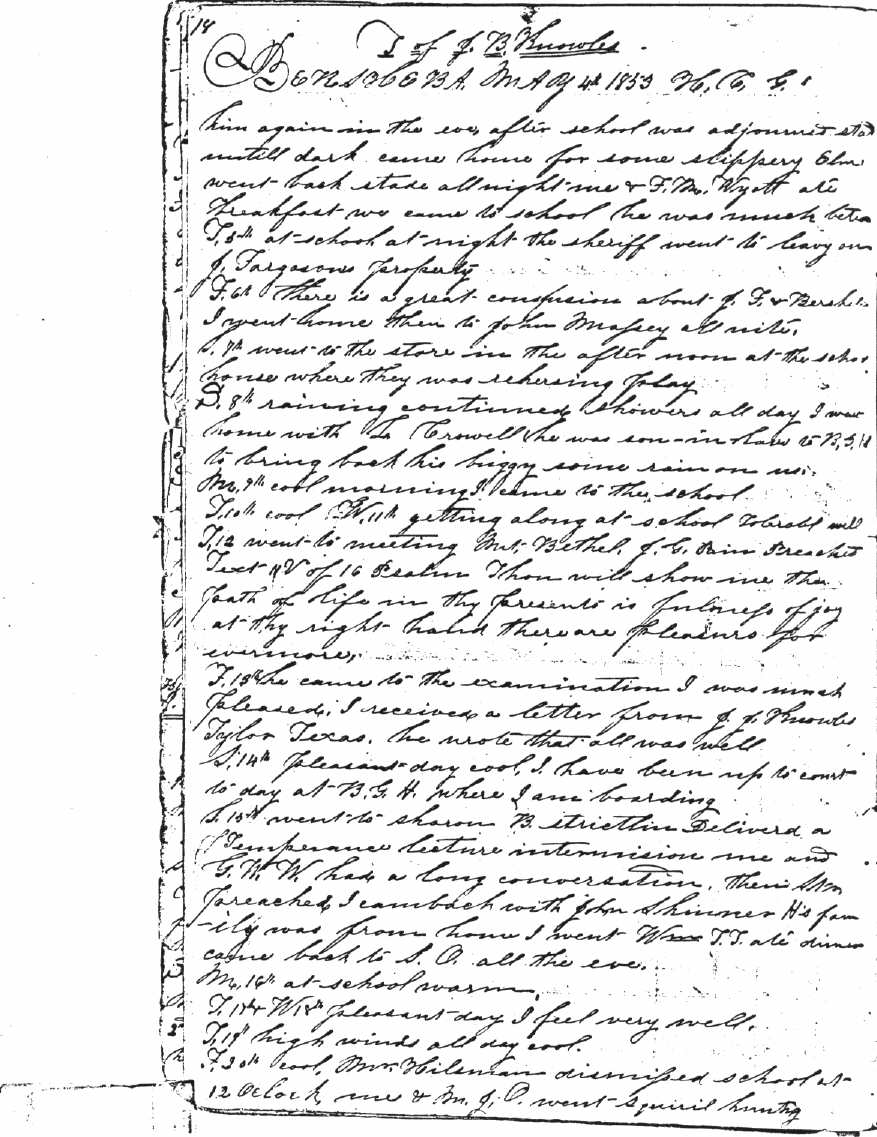 18
J of J. B. Knowles.
BERSHEBA. MAY 4th 1853 H. C. G.
him again in the eve, after school was adjournd sta
untill dark came home for some slippery Elm
went back stade all night me & F. M. Wyatt ate
Breakfast we came to school he was much bette
T. 5th at school at night the sheriff went to leavy on
J. Fargasons property
F. 6th There is a great confusion about J. F. & Bersheb
I went home then to John Massey all nite.
S. 7th went to the store in the after noon at the schoo
house where they was rehersing play
S. 8th raining continued showers all day I went
home with L. Crowell he was son-in-law to B, G, H
to bring back his buggy some rain on us.
M. 9th cool morning I came to the school
T. 10th cool W. 11th getting along at school Tolerabl well
T. 12 went to meeting Mt. Bethel. J. G. Preached
Text 11 V of 16 Psalm Thou will show me the
path of life in thy presents is fulness of joy
at thy right hand there are pleasurs for
evermore,
F. 13th he came to the examination I was much
pleased. I received a letter from J. J. Knowles
Tylor Texas. he wrote that all was well
S. 14th pleasant day cool, I have been up to court
to day at B. G. H. where I am boarding
S. 15th went to sharon B. Deliverd a
Temperance lecture intermision me and
G. W. W. had a long conversation. then
preached, I cam back with John Skinner His fam
-ily was from home I went Wm T. T. ate dinner
came back to S. O. all the eve.
M. 16th at school warm.
T. 17th & W 18th pleasant day I feel very well.
T. 19th high winds all day cool.
F. 20th cool, Mr. Hilsman dismissed school at
12 Oclock, me & M. J. O. went squiril huntg